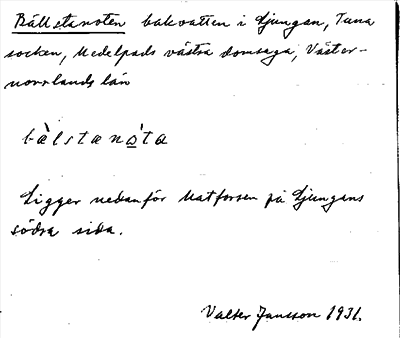 Bällstanoten bakvatten i Ljungan, Tuna
socken, Medelpads västra domsaga, Väster-
norrlands län
bälstano̲ta
Ligger nedanför Matforsen på Ljungans
södra sida.
Valter Jansson 1931.